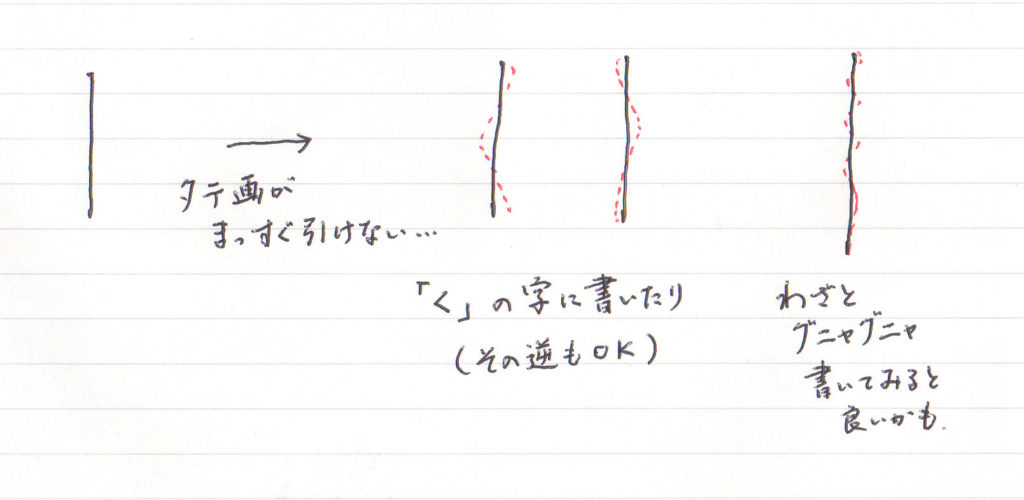 タテ画が
まっすぐ引けない…
「く」の字に書いたり
(その逆もOK)
わざと
グニャグニャ
書いてみると
良いかも.